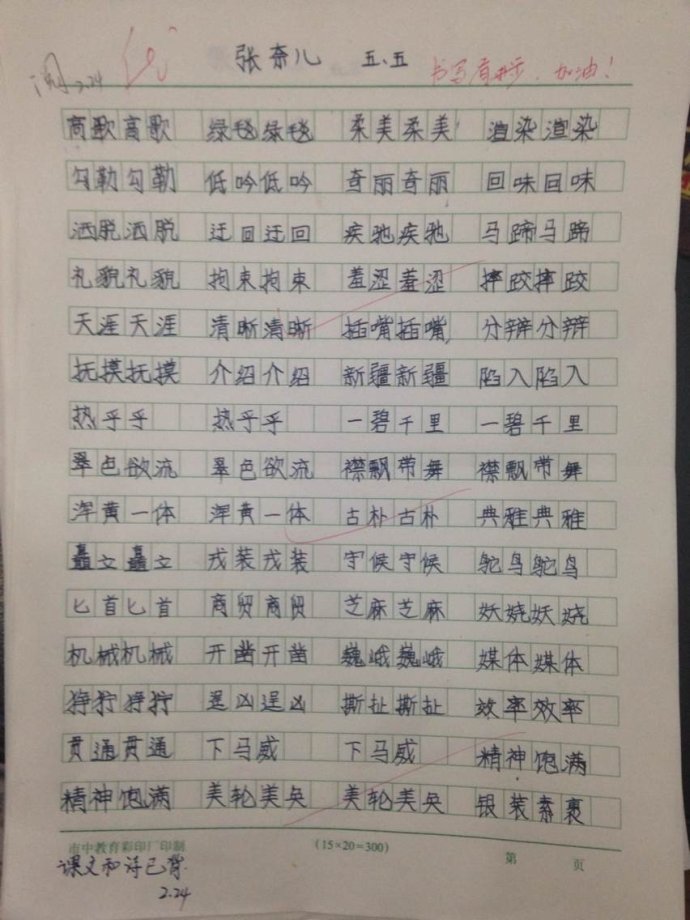 阅 2.24 优 张奈儿 五.五 书写有进步,加油!
高歌高歌 绿毯绿毯 柔美柔美 渲染渲染
勾勒勾勒 低吟低吟 奇丽奇丽 回味回味
洒脱洒脱 迂回迂回 疾驰疾驰 马蹄马蹄
礼貌礼貌 拘束拘束 羞涩羞涩 摔跤摔跤
天涯天涯 清晰清晰 插嘴插嘴 分辨分辨
抚摸抚摸 介绍介绍 新疆新疆 陷入陷入
热乎乎 热乎乎 一碧千里 一碧千里
翠色欲流 翠色欲流 襟飘带舞 襟飘带舞
浑黄一体 浑黄一体 古朴古朴 典雅典雅
矗立矗立 戎装戎装 守候守候 鸵鸟鸵鸟
匕首匕首 商贸商贸 芝麻芝麻 妖娆妖娆
机械机械 开凿开凿 巍峨巍峨 媒体媒体
狰狞狰狞 逞凶逞凶 撕扯撕扯 效率效率
贯通贯通 下马威 下马威 精神饱满
精神饱满 美轮美奂 美轮美奂 银装素裹
市中教育彩印厂印制 (15×20=300) 第 页
课文和诗已背
2.24